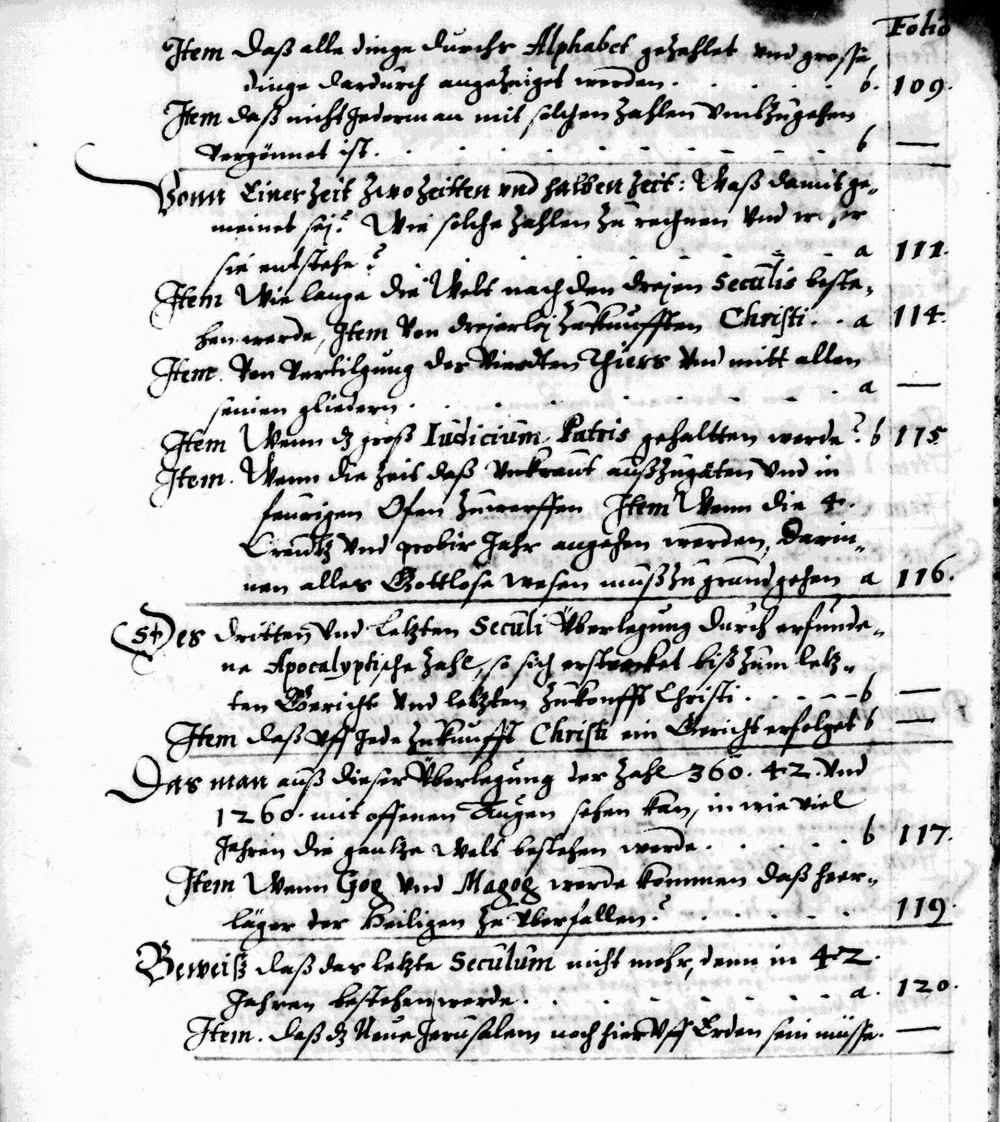 Folio
Item daß alle dinge durchs Alphabet gezahlet und grosse
dinge dardurch angezeiget werden. b. 109.
Item daß nicht Jederman mit solchen Zahlen umbzugehen
vergönnet ist. b —
Vonn Einer Zeit Zwo Zeitten und halben Zeit: Waß damit ge-
meinet sej? Wie solche Zahlen zu rechnen und woher
sie entstehe? a 111.
Item Wie lange die Welt nach den drejen Seculis beste-
hen werde, Item Von drejerlej Zukunfften Christi. a 114.
Item. Von Vertilgung des Vierdten Thiers und mitt allen
seinen gliedern. a —
Item Wenn dz groß Iudicium Patris gehaltten werde? b 115
Item. Wenn die Zeit daß Unkraut außzugäten und in
feurigen Ofen zuwerffen Item Wenn die 4.
Creutz und probir Jahr angehen werden, darin-
nen alles Gottlose wesen muß zu grund gehen a 116.
Des dritten und letzten Seculi Überlegung durch erfunde-
ne Apocalyptische Zahl, so sich erstrecket biß zum letz-
ten Gericht und letzten Zukonfft Christi. b —
Item daß uff Jede Zukunfft Christi ein Gericht erfolget b —
Das man auß dieser Überlegung der Zahl 360. 42. und
1260. mit offenen Augen sehen kan, in wie viel
Jahren die gantze Welt bestehen werde. b 117.
Item Wann Gog und Magog werde kommen daß heer-
läger der Heiligen zu überfallen? 119.
Beweiß daß das letzte Seculum nicht mehr, denn in 42.
Jahren bestehen werde. a. 120.
Item. daß dz Neue Jerusalem noch hier uff Erden sein müsse. —